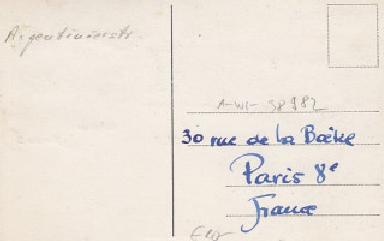 Argentinierstr.
A-WI- 38982
30 rue de La Boëtie
Paris 8e
France